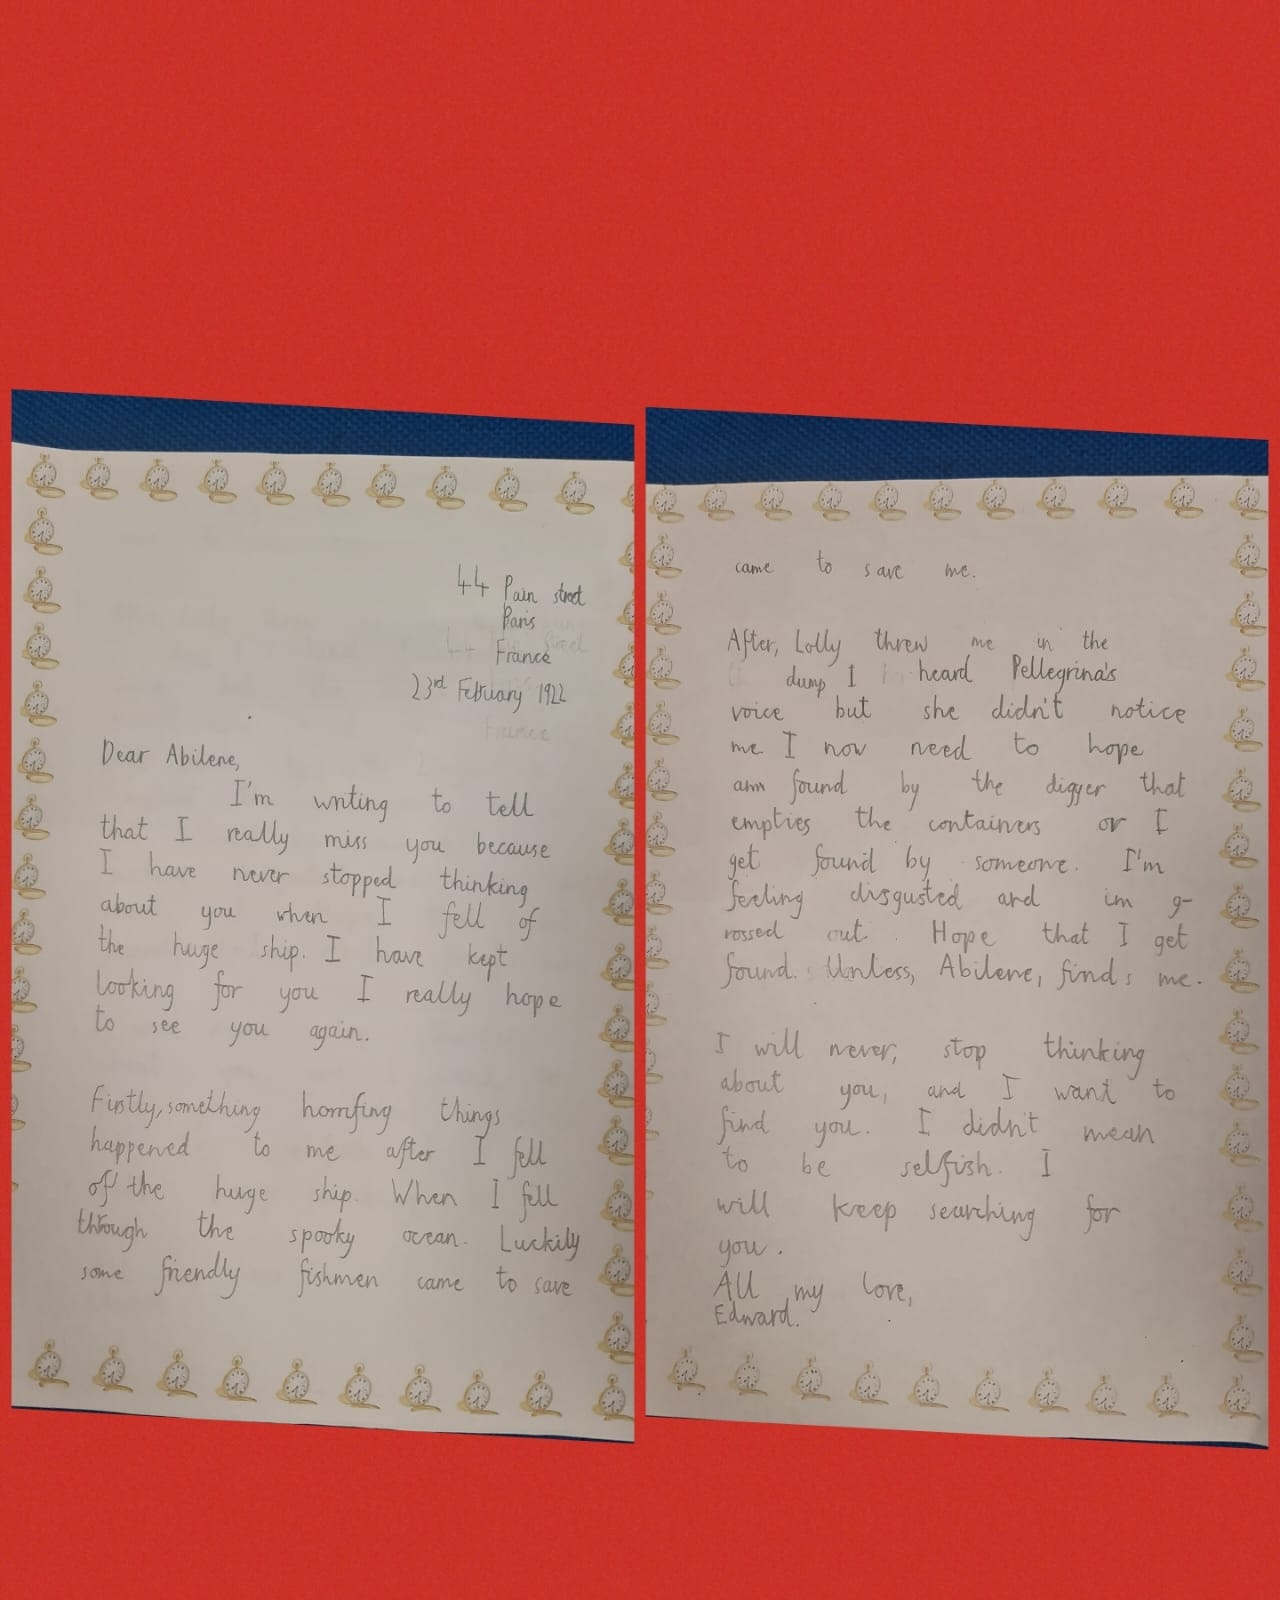 44 Pain street
Paris
France
23rd February 1922
Dear Abilene,
I'm writing to tell
that I really miss you because
I have never stopped thinking
about you when I fell of
the huge ship. I have kept
looking for you I really hope
to see you again.
Firstly, something horrifing things
happened to me after I fell
of the huge ship. When I fell
through the spooky ocean. Luckily
some friendly fishmen came to save
came to save me.
After, Lolly threw me in the
dump I heard Pellegrina's
voice but she didn't notice
me. I now need to hope
am found by the digger that
empties the containers or I
get found by someone. I'm
feeling disgusted and im g-
rossed out. Hope that I get
found. Unless, Abilene, finds me.
I will never, stop thinking
about you, and I want to
find you. I didn't mean
to be selfish. I
will keep searching for
you.
All my love,
Edward.